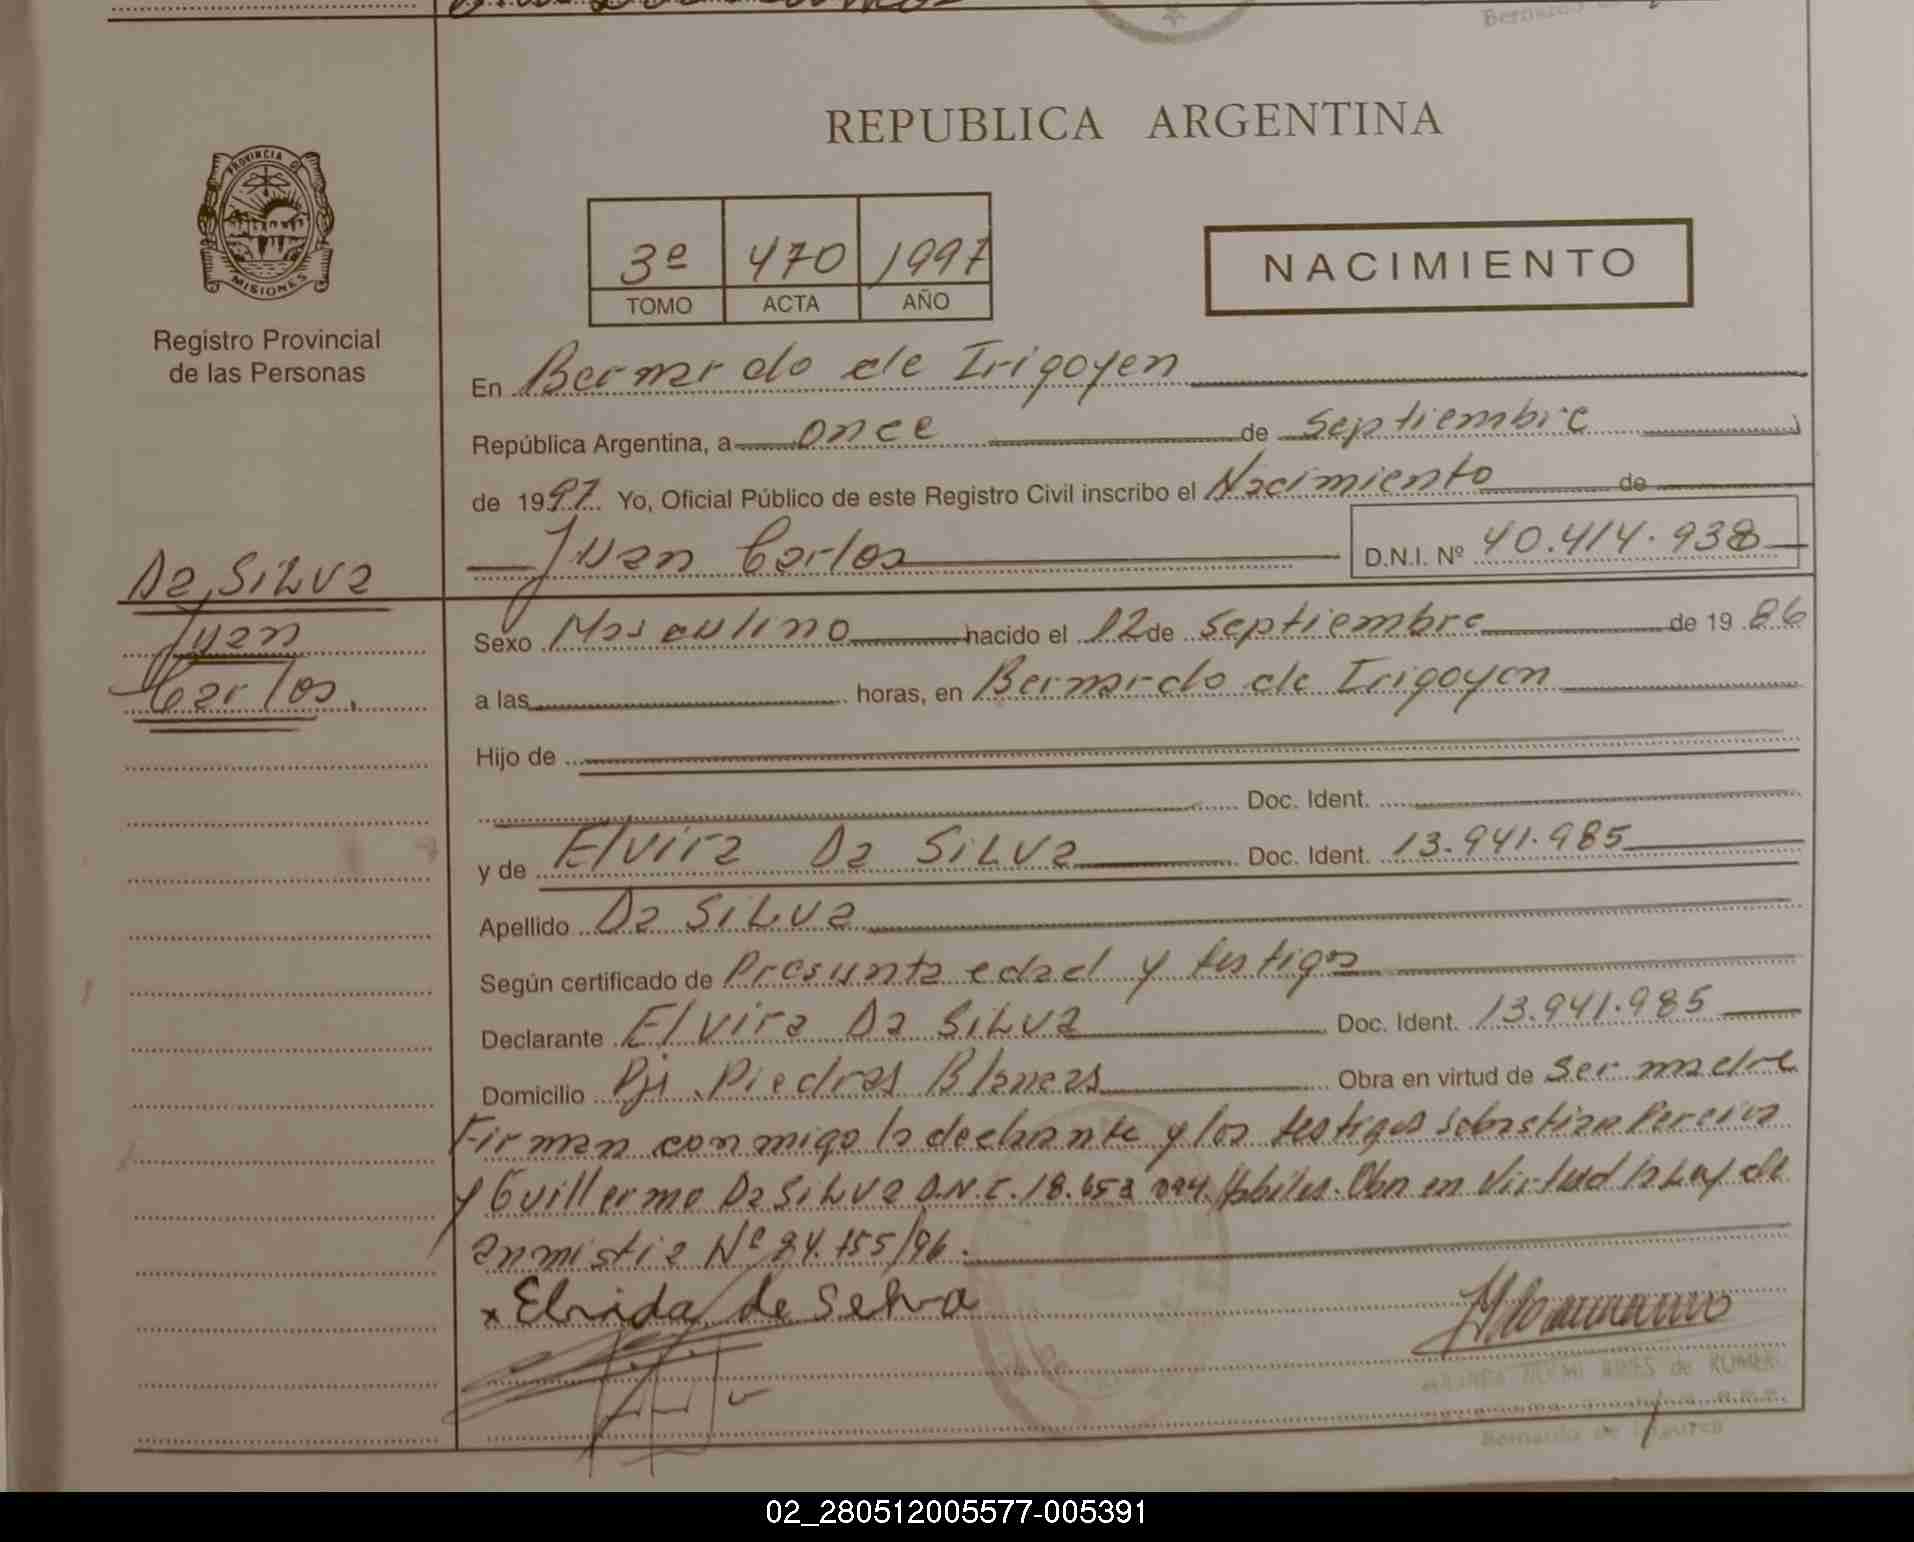 REPUBLICA ARGENTINA
PROVINCIA DE
MISIONES
Registro Provincial
de las Personas
3º 470 1997
TOMO ACTA AÑO
NACIMIENTO
En Bernardo de Irigoyen
República Argentina, a once de septiembre
de 1997. Yo, Oficial Público de este Registro Civil inscribo el Nacimiento de
Juan Carlos D.N.I. Nº 40.414.938
Da SiLva
Juan
Carlos.
Sexo Masculino nacido el 12 de septiembre de 1986
a las horas, en Bernardo de Irigoyen
Hijo de
Doc. Ident.
y de Elvira Da SiLva Doc. Ident. 13.941.985
Apellido Da SiLva
Según certificado de Presunta edad y testigos
Declarante Elvira Da SiLva Doc. Ident. 13.941.985
Domicilio Pje. Piedras Blancas Obra en virtud de ser madre
Firman conmigo la declarante y los testigos sebastian Pereira
y Guillermo Da SiLva D.N.I. 18. Habiles. Obra en Virtud la Ley de
anmistia Nº 24.755/96.
x Elvida de Selva
de ROMERO
Bernardo de Irigoyen
02_280512005577-005391